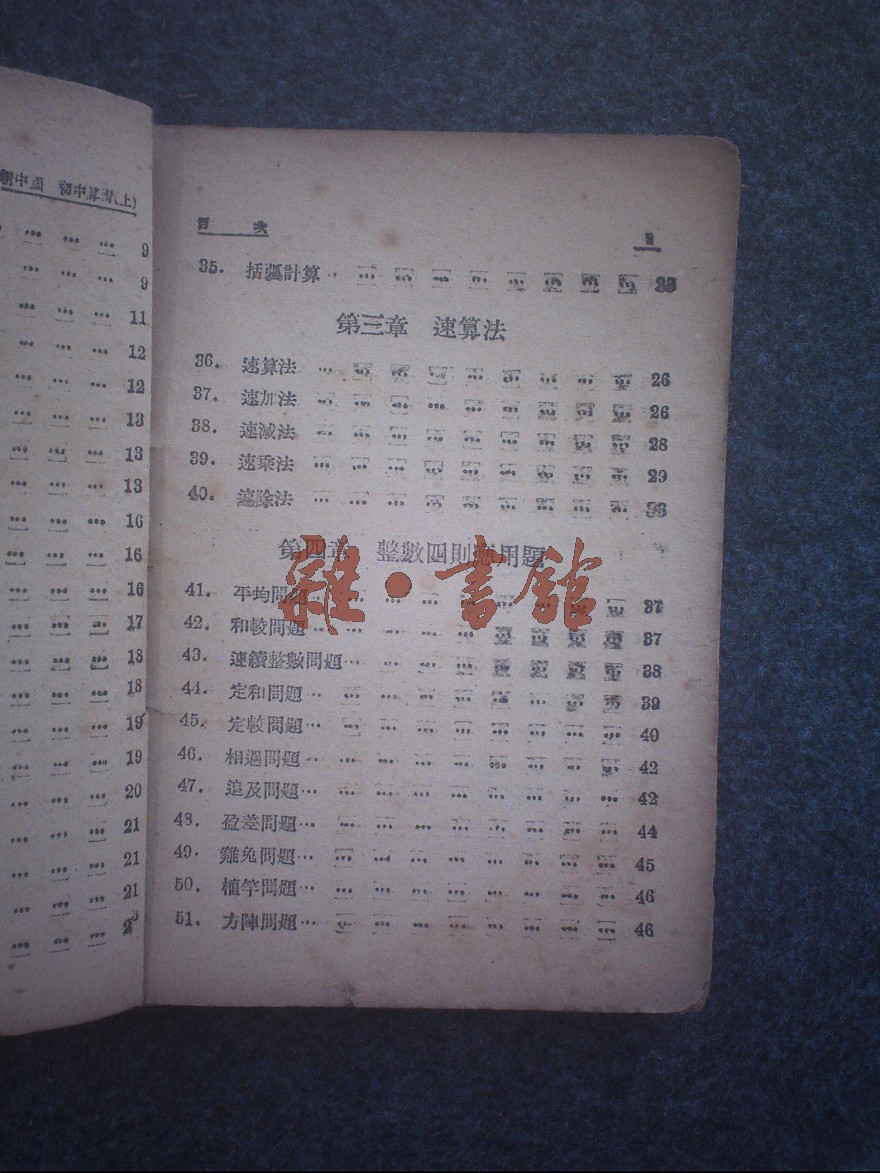 新中國 初中算術(上)
9
9
11
12
12
13
13
13
16
16
16
17
18
18
19
19
20
21
21
21
目 次
35. 括弧計算 … … … … … … … … …
第三章 速算法
36. 速算法 … … … … … … … … … 26
37. 速加法 … … … … … … … … … 26
38. 速減法 … … … … … … … … … 28
39. 速乘法 … … … … … … … … … 29
40. 速除法 … … … … … … … … … 33
第四章 整數四則應用題
41. 平均問題 … … … … … … … … … 37
42. 和較問題 … … … … … … … … … 37
43. 連續整數問題 … … … … … … … … 38
44. 定和問題 … … … … … … … … … 39
45. 定較問題 … … … … … … … … … 40
46. 相遇問題 … … … … … … … … … 42
47. 追及問題 … … … … … … … … … 42
48. 盈差問題 … … … … … … … … … 44
49. 雞兔問題 … … … … … … … … … 45
50. 植竿問題 … … … … … … … … … 46
51. 方陣問題 … … … … … … … … … 46
雜·書館